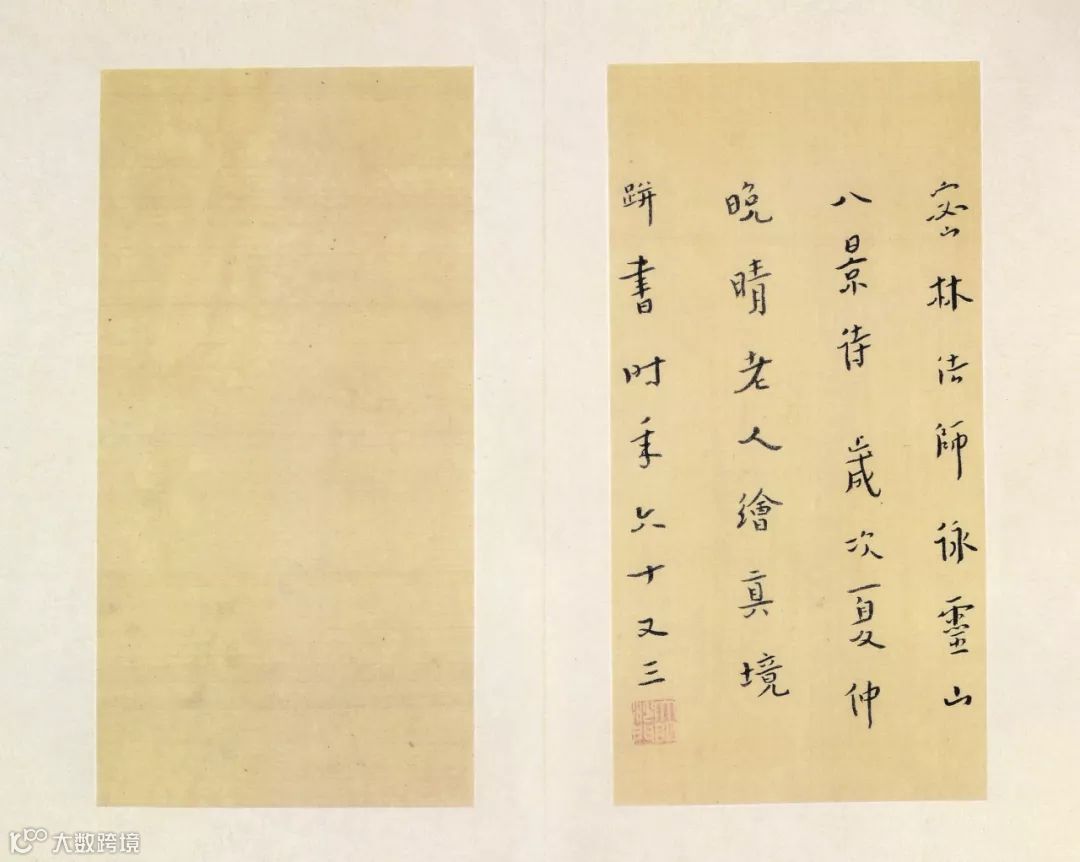 密林法師詠靈山
八景待 歲次夏仲
晚晴老人繪真境
跰書時年六十又三
大数跨境